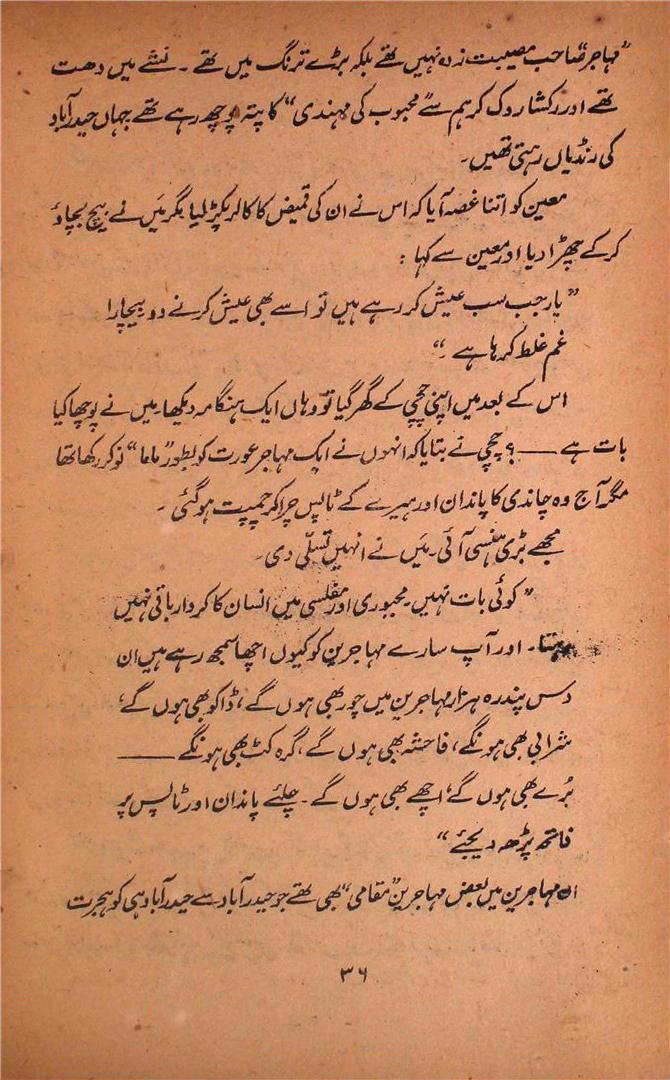 ”مہاجر“ صاحب مصیبت زدہ نہیں تھے بلکہ بڑے ترنگ میں تھے ۔ نشے میں دھت
تھے اور رکشا روک کر ہم سے ”محبوب کی مہندی“ کا پتہ پوچھ رہے تھے جہاں حیدرآباد
کی رنڈیاں رہتی تھیں۔
معین کو اتنا غصہ آیا کہ اس نے ان کی قمیض کا کالر پکڑ لیا مگر میں نے بیچ بچاؤ
کر کے چھڑا دیا اور معین سے کہا :
”یار جب سب عیش کر رہے ہیں تو اسے بھی عیش کرنے دو بیچارا
غم غلط کر رہا ہے ۔“
اس کے بعد میں اپنی چچی کے گھر گیا تو وہاں ایک ہنگامہ دیکھا۔ میں نے پوچھا کیا
بات ہے ــــ ؟ چچی نے بتایا کہ انہوں نے ایک مہاجر عورت کو بطور ”ماما“ نوکر رکھا تھا
مگر آج وہ چاندی کا پاندان اور ہیرے کے ٹاپس چرا کر چمپت ہوگئی ۔
مجھے بڑی ہنسی آئی۔ میں نے انہیں تسلّی دی۔
”کوئی بات نہیں۔ مجبوری اور مفلسی میں انسان کا کردار باقی نہیں
رہتا۔ اور آپ سارے مہاجرین کو کیوں اچھا سمجھ رہے ہیں ان
دس پندرہ ہزار مہاجرین میں چور بھی ہوں گے، ڈاکو بھی ہوں گے،
شرابی بھی ہونگے، فاحشہ بھی ہوں گے، گرہ کٹ بھی ہونگے ــــ
بُرے بھی ہوں گے، اچھے بھی ہوں گے۔ چلئے پاندان اور ٹاپس پر
فاتحہ پڑھ دیجئے“
ان مہاجرین میں بعض مہاجرین ”مقامی“ بھی تھے جو حیدرآباد سے حیدرآباد ہی کو ہجرت
۳۶